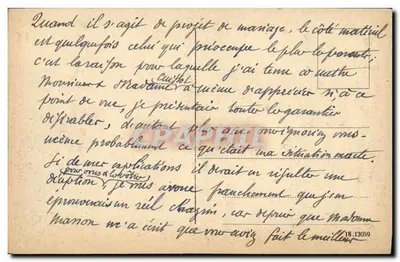 Quand il s'agit de projet de mariage, le côté matériel
est quelquefois celui qui préoccupe le plus les parents,
c'est la raison pour laquelle j'ai tenu à mettre
Monsieur & Madame à même d'apprécier si, à ce
point de vue, je présentais toutes les garanties
désirables, d'autant plus que vous ignoriez vous-
même probablement ce qu'était ma situation exacte.
Si de mes explications il devait en résulter une
pour vous
déception, je vous avoue franchement que j'en
éprouverais un réel chagrin, car depuis que Madame
Masson m'a écrit que vous aviez fait le meilleur
18.13059